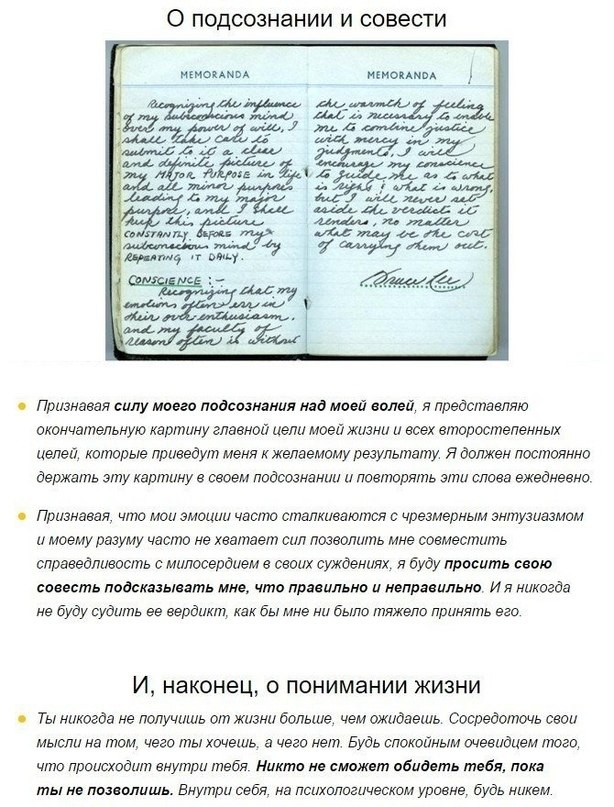 О подсознании и совести
MEMORANDA
Recognizing the influence
of my subconscious mind
over my power of will, I
shall take care to
submit to it a clear
and definite picture of
my MAJOR PURPOSE in life
and all minor purposes
leading to my major
purpose, and I shall
keep this picture
CONSTANTLY BEFORE my
subconscious mind by
REPEATING IT DAILY.
CONSCIENCE :-
Recognizing that my
emotions often err in
their over enthusiasm,
and my faculty of
reason often is without
MEMORANDA
the warmth of feeling
that is necessary to enable
me to combine justice
with mercy in my
judgments, I will
encourage my conscience
to guide me as to what
is right & what is wrong,
but I will never set
aside the verdicts it
renders, no matter
what may be the cost
of carrying them out.
Bruce Lee
Признавая силу моего подсознания над моей волей, я представляю
окончательную картину главной цели моей жизни и всех второстепенных
целей, которые приведут меня к желаемому результату. Я должен постоянно
держать эту картину в своем подсознании и повторять эти слова ежедневно.
Признавая, что мои эмоции часто сталкиваются с чрезмерным энтузиазмом
и моему разуму часто не хватает сил позволить мне совместить
справедливость с милосердием в своих суждениях, я буду просить свою
совесть подсказывать мне, что правильно и неправильно. И я никогда
не буду судить ее вердикт, как бы мне ни было тяжело принять его.
И, наконец, о понимании жизни
Ты никогда не получишь от жизни больше, чем ожидаешь. Сосредоточь свои
мысли на том, чего ты хочешь, а чего нет. Будь спокойным очевидцем того,
что происходит внутри тебя. Никто не сможет обидеть тебя, пока
ты не позволишь. Внутри себя, на психологическом уровне, будь никем.